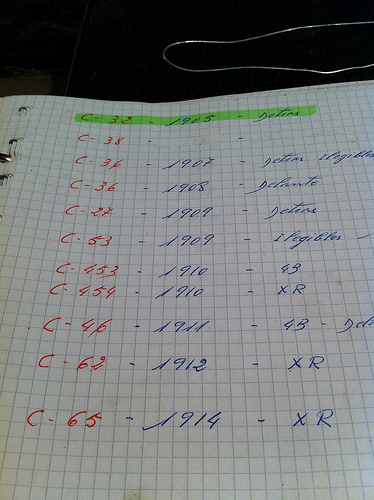 C - 32 - 1905 - Detras
C - 38 - -
C - 36 - 1907 - Detras Ilegibles
C - 36 - 1908 - Delante
C - 27 - 1909 - Detras
C - 53 - 1909 - Ilegibles -
C - 453 - 1910 - 4B
C - 454 - 1910 - XR
C - 46 - 1911 - 4B - Del
C - 62 - 1912 - XR
C - 65 - 1914 - XR